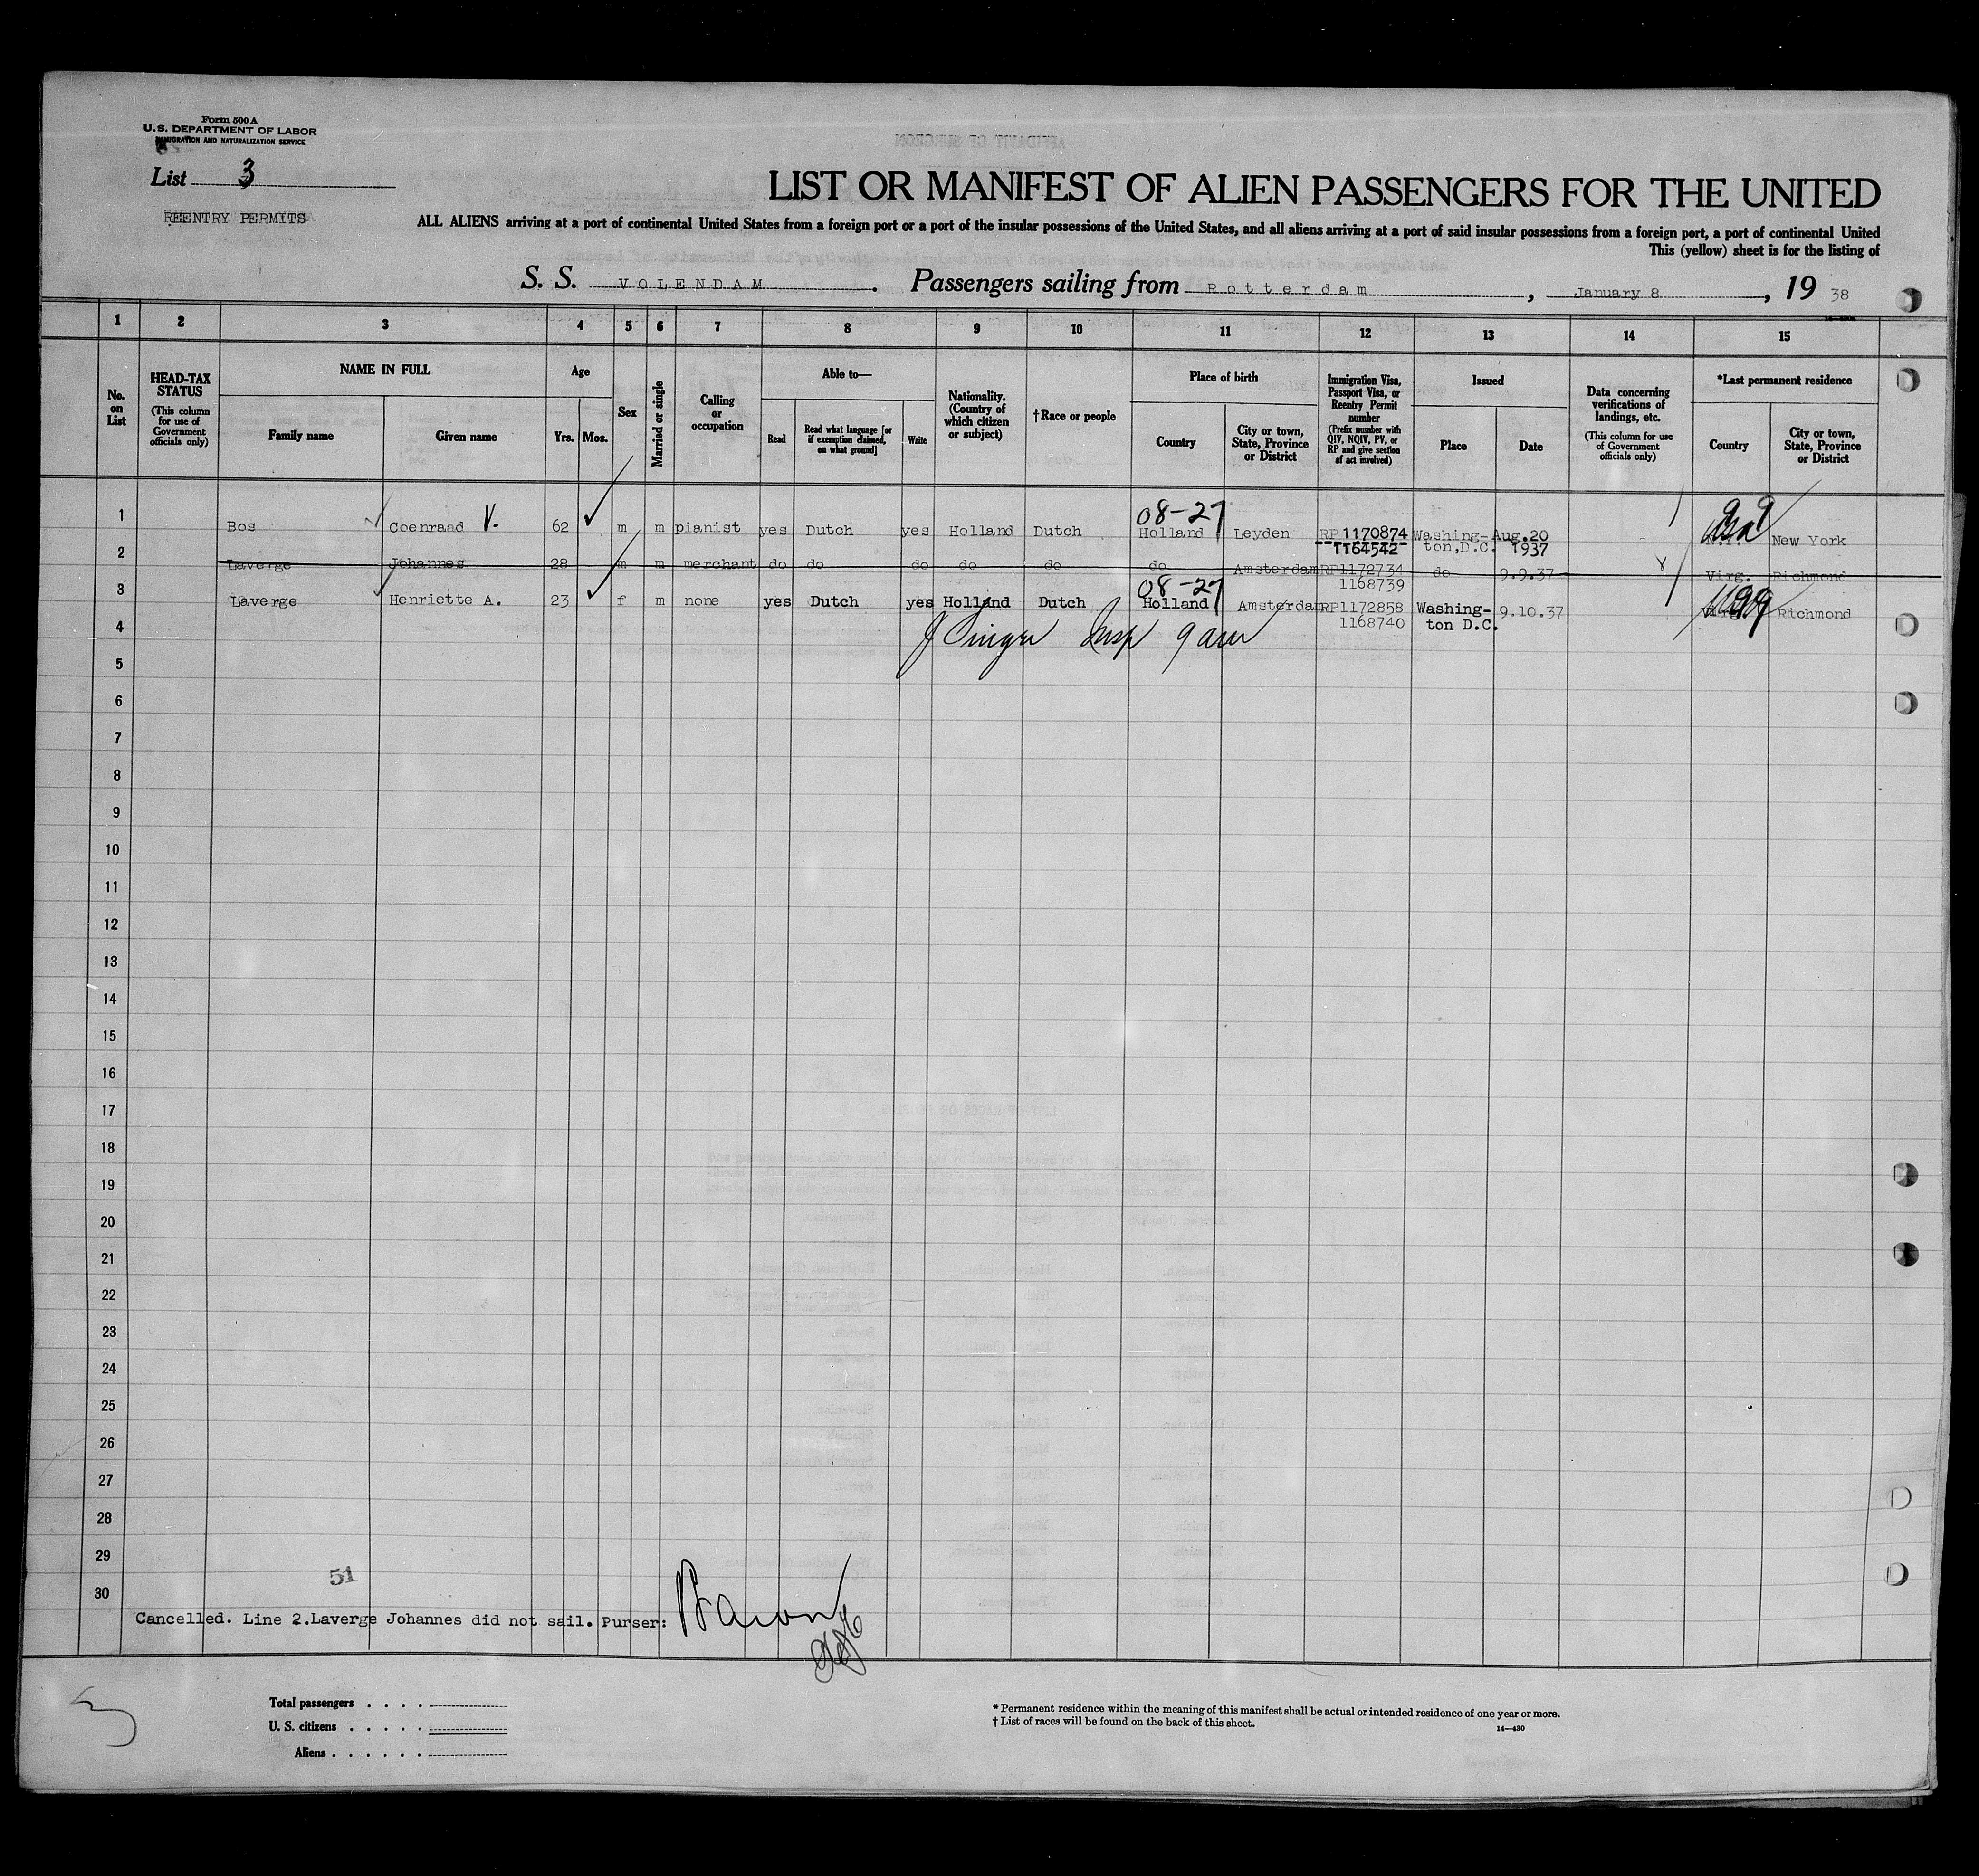 Form 500 A
U. S. DEPARTMENT OF LABOR
IMMIGRATION AND NATURALIZATION SERVICE
List 3
REENTRY PERMITS
LIST OR MANIFEST OF ALIEN PASSENGERS FOR THE UNITED
ALL ALIENS arriving at a port of continental United States from a foreign port or a port of the insular possessions of the United States, and all aliens arriving at a port of said insular possessions from a foreign port, a port of continental United
This (yellow) sheet is for the listing of
S. S. VOLENDAM. Passengers sailing from Rotterdam, January 8, 19 38
1 2 3 4 5 6 7 8 9 10 11 12 13 14 15
No. on List
HEAD-TAX STATUS
(This column for use of Government officials only)
NAME IN FULL
Family name Given name
Age
Yrs. Mos.
Sex
Married or single
Calling or occupation
Able to—
Read
Read what language [or if exemption claimed, on what ground]
Write
Nationality. (Country of which citizen or subject)
†Race or people
Place of birth
Country
City or town, State, Province or District
Immigration Visa, Passport Visa, or Reentry Permit number
(Prefix number with QIV, NQIV, PV, or RP and give section of act involved)
Issued
Place Date
Data concerning verifications of landings, etc.
(This column for use of Government officials only)
*Last permanent residence
Country
City or town, State, Province or District
08-27
1 Bos Coenraad V. 62 m m pianist yes Dutch yes Holland Dutch Holland Leyden RP1170874 Washing- Aug.20 New York
1164542 ton,D.C. 1937
2 Laverge Johannes 28 m m merchant do do do do do do Amsterdam RP1172734 do 9.9.37 Virg. Richmond
1168739
08-27
3 Laverge Henriette A. 23 f m none yes Dutch yes Holland Dutch Holland Amsterdam RP1172858 Washing- 9.10.37 Richmond
1168740 ton D.C.
4
5
6
7
8
9
10
11
12
13
14
15
16
17
18
19
20
21
22
23
24
25
26
27
28
29
51
30
Cancelled. Line 2.Laverge Johannes did not sail. Purser:
Total passengers
U. S. citizens
Aliens
* Permanent residence within the meaning of this manifest shall be actual or intended residence of one year or more.
† List of races will be found on the back of this sheet.
14—430